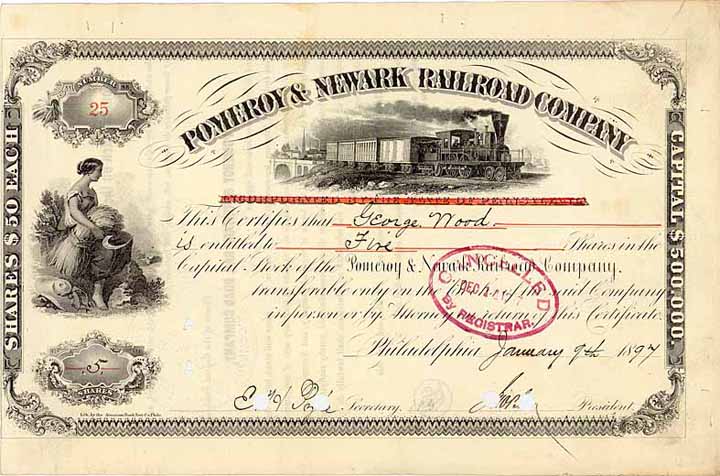 NUMBER
25
POMEROY & NEWARK RAILROAD COMPANY
SHARES $50 EACH
CAPITAL $500,000.
INCORPORATED BY THE STATE OF PENNSYLVANIA
This Certifies that George Wood
is entitled to Five Shares in the
Capital Stock of the Pomeroy & Newark Railroad Company.
transferable only on the of the said Company
in person or by Attorney on return of this Certificate.
CANCELLED
DEC
BY REGISTRAR.
Philadelphia January 9th 1897
5
SHARES
Secretary.
President.
Lith. by the American Bank Note Co. Phila.